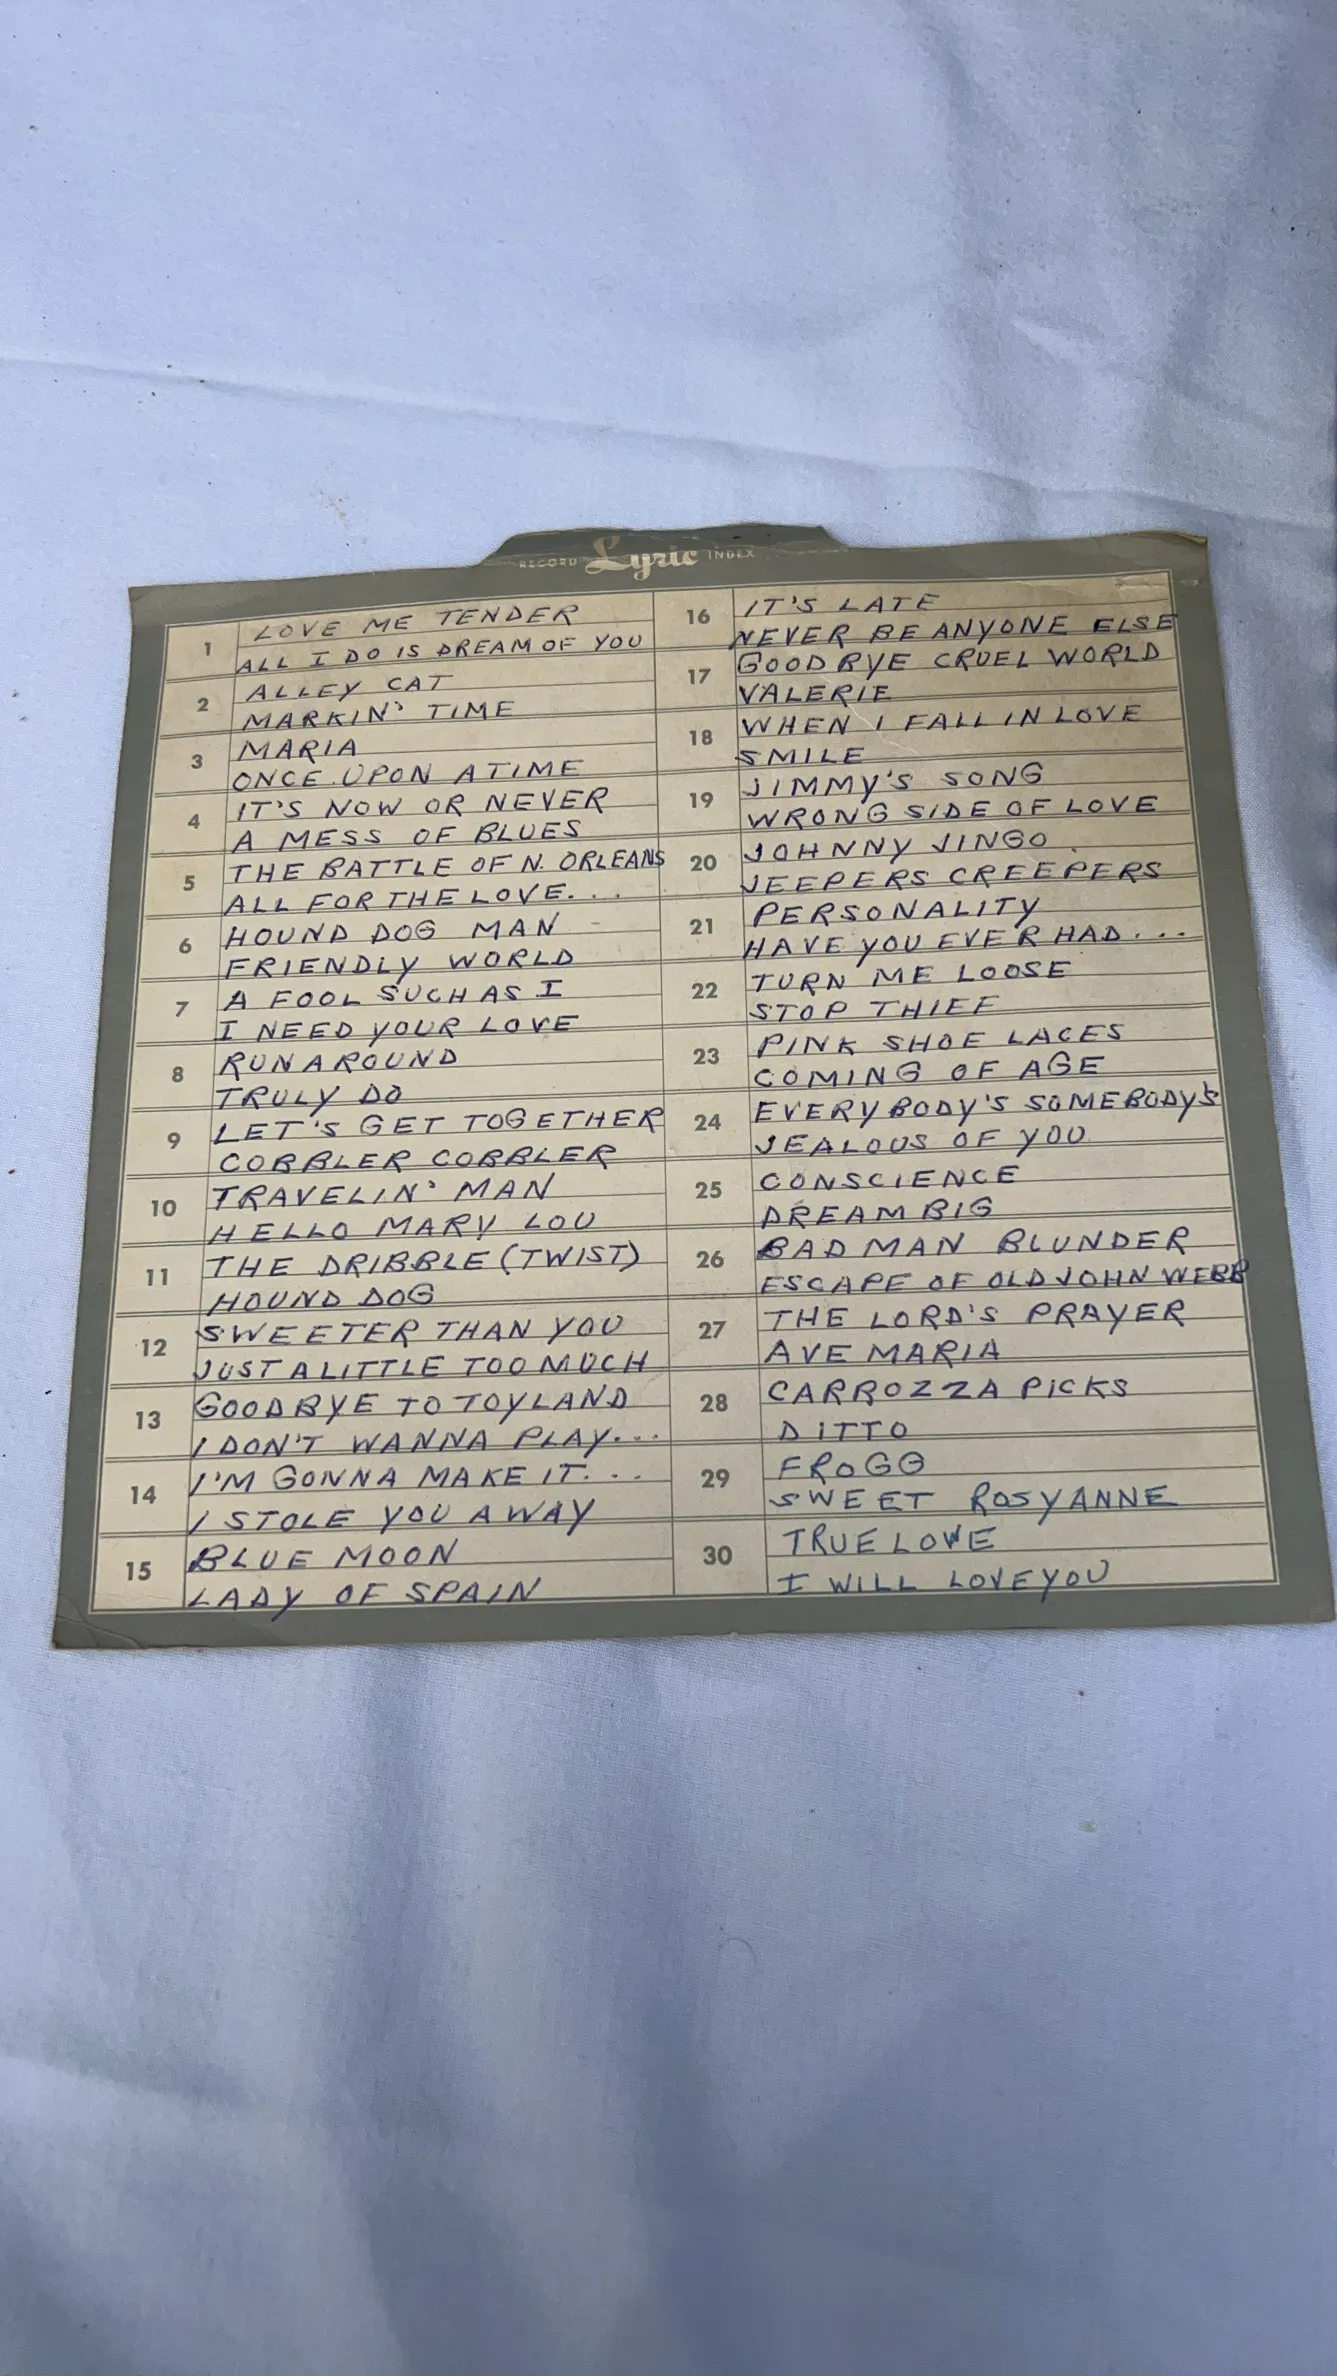 RECORD Lyric INDEX
1
LOVE ME TENDER
ALL I DO IS DREAM OF YOU
2
ALLEY CAT
MARKIN' TIME
3
MARIA
ONCE UPON A TIME
4
IT'S NOW OR NEVER
A MESS OF BLUES
5
THE BATTLE OF N. ORLEANS
ALL FOR THE LOVE. . .
6
HOUND DOG MAN
FRIENDLY WORLD
7
A FOOL SUCH AS I
I NEED YOUR LOVE
8
RUNAROUND
TRULY DO
9
LET'S GET TOGETHER
COBBLER COBBLER
10
TRAVELIN' MAN
HELLO MARY LOU
11
THE DRIBBLE (TWIST)
HOUND DOG
12
SWEETER THAN YOU
JUST A LITTLE TOO MUCH
13
GOODBYE TO TOYLAND
I DON'T WANNA PLAY...
14
I'M GONNA MAKE IT. . .
I STOLE YOU AWAY
15
BLUE MOON
LADY OF SPAIN
16
IT'S LATE
NEVER BE ANYONE ELSE
17
GOODBYE CRUEL WORLD
VALERIE
18
WHEN I FALL IN LOVE
SMILE
19
JIMMY'S SONG
WRONG SIDE OF LOVE
20
JOHNNY JINGO
JEEPERS CREEPERS
21
PERSONALITY
HAVE YOU EVER HAD...
22
TURN ME LOOSE
STOP THIEF
23
PINK SHOE LACES
COMING OF AGE
24
EVERYBODY'S SOMEBODY'S
JEALOUS OF YOU
25
CONSCIENCE
DREAM BIG
26
BAD MAN BLUNDER
ESCAPE OF OLD JOHN WEBB
27
THE LORD'S PRAYER
AVE MARIA
28
CARROZZA PICKS
DITTO
29
FROGG
SWEET ROSYANNE
30
TRUE LOVE
I WILL LOVE YOU